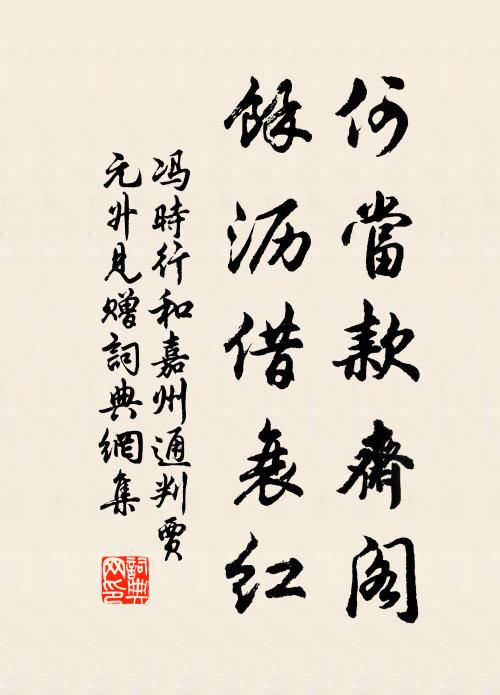 何當款齋阁
餘沥借衰红
冯時行和嘉州通判賈
元外見赠詞典網集
詞典网印